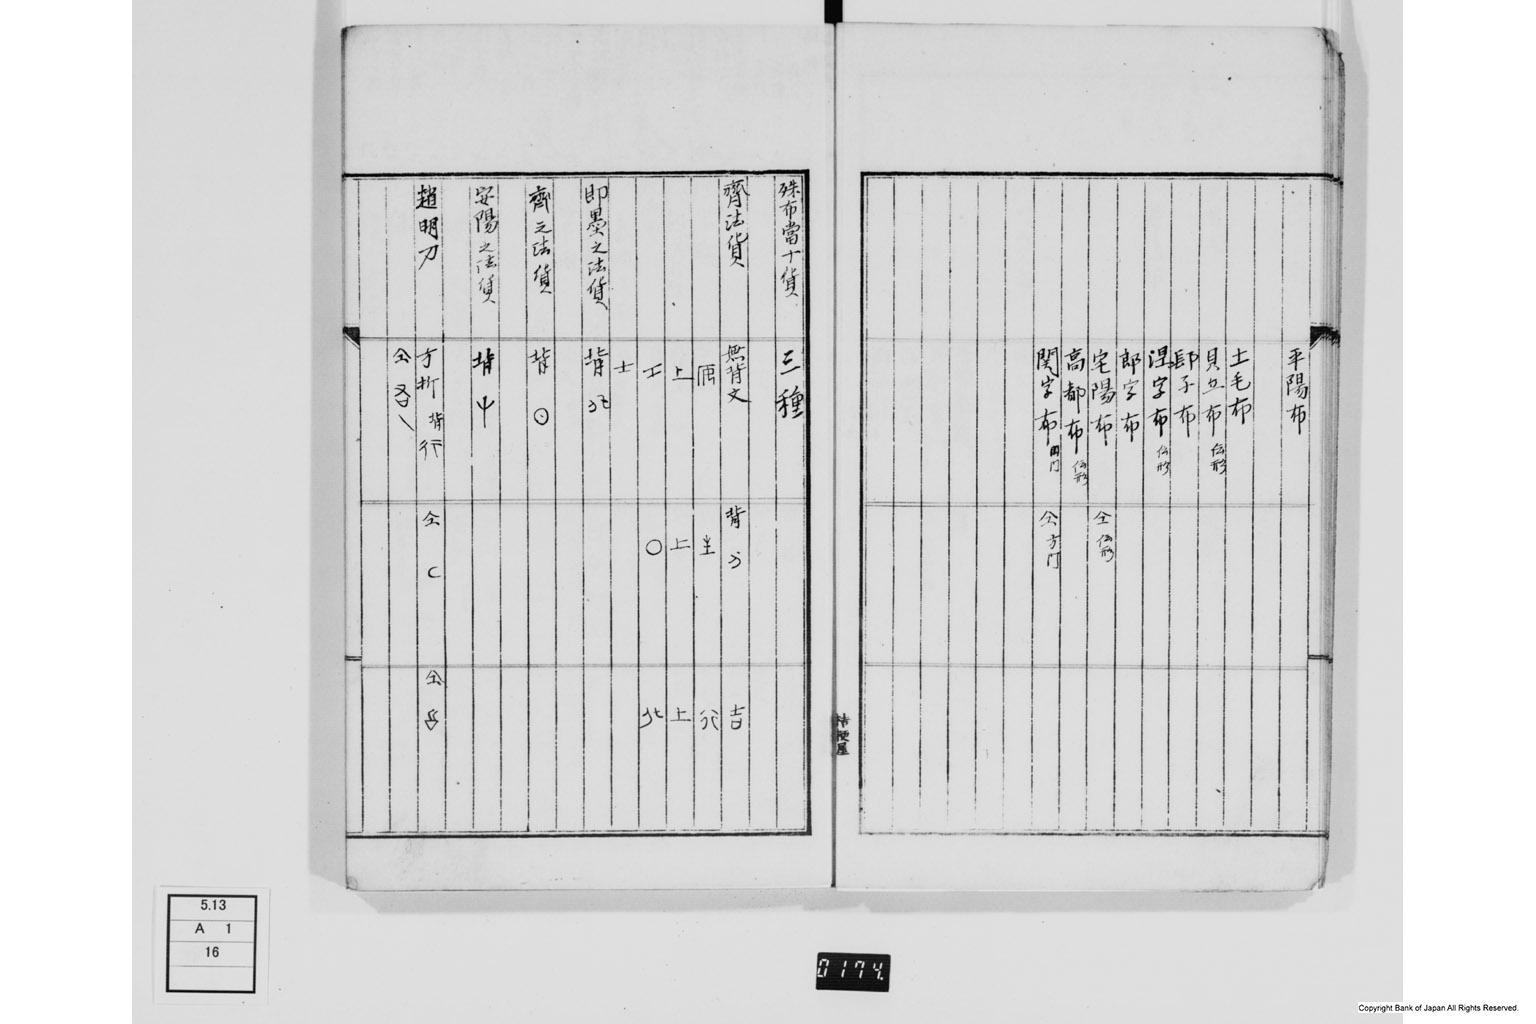 平陽布
土毛布
貝丘布 仝形
郆子布
涅字布 仝形
郎字布
宅陽布 仝 仝形
高都布 仝形
関字布 四门 仝 方门
桔梗屋
殊布當十貨 三種
齊法貨 無背文 背 吉
上 上 上
工 〇 化
士
即墨之法貨 背 化
齊之法貨 背 ⊙
安陽之法貨 背
趙明刀 方折 背 行 仝 仝
仝
5.13
A 1
16
0174.
Copyright Bank of Japan All Rights Reserved.